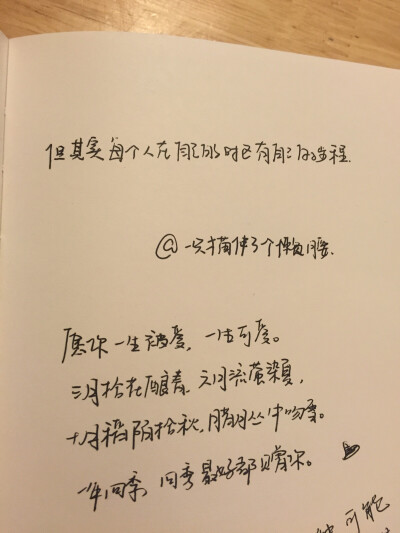 但其实每个人在自己的时区有自己的步程.
@一只猫伸了个懒腰.
愿你一生被爱,一生可爱。
三月拾花酿春,六月流萤染夏,
十月稻陌拾秋,腊月丛中吻雪。
一年四季,四季最好都赠你。
可能